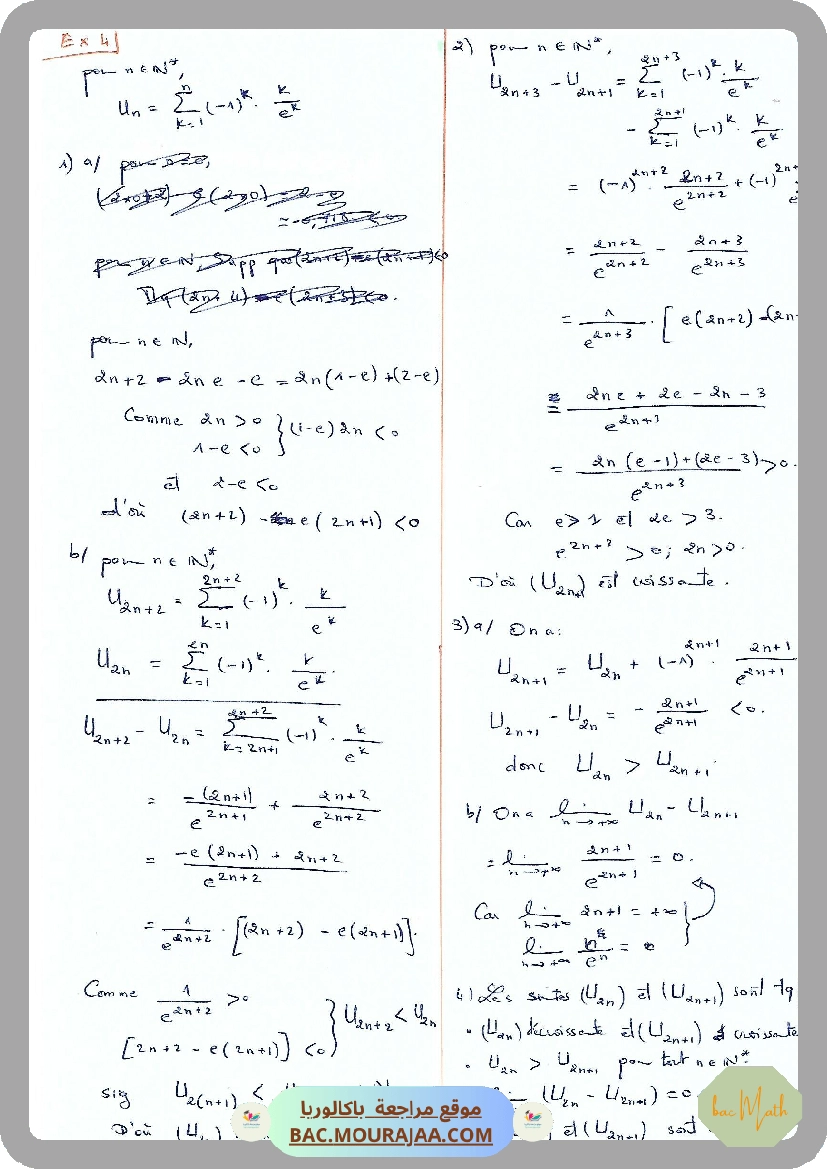 Ex 4
pour n ∈ ℕ*,
Un = Σ_{k=1}^{n} (-1)^k · k/e^k
1) a/
pour n ∈ ℕ,
2n+2 - 2n e - e = 2n(1-e) + (2-e)
Comme 2n > 0
1-e < 0 } (1-e) 2n < 0
et 2-e < 0
d'où (2n+2) - e(2n+1) < 0
b/ pour n ∈ ℕ*,
U_{2n+2} = Σ_{k=1}^{2n+2} (-1)^k · k/e^k
U_{2n} = Σ_{k=1}^{2n} (-1)^k · k/e^k
U_{2n+2} - U_{2n} = Σ_{k=2n+1}^{2n+2} (-1)^k · k/e^k
= -(2n+1)/e^{2n+1} + (2n+2)/e^{2n+2}
= (-e(2n+1) + 2n+2)/e^{2n+2}
= 1/e^{2n+2} · [(2n+2) - e(2n+1)].
Comme 1/e^{2n+2} > 0
[2n+2 - e(2n+1)] < 0 } U_{2n+2} < U_{2n}
sig U_{2(n+1)} <
D'où
2) pour n ∈ ℕ*,
U_{2n+3} - U_{2n+1} = Σ_{k=1}^{2n+3} (-1)^k · k/e^k
- Σ_{k=1}^{2n+1} (-1)^k · k/e^k
= (-1)^{2n+2} · (2n+2)/e^{2n+2} + (-1)^{2n+
= (2n+2)/e^{2n+2} - (2n+3)/e^{2n+3}
= 1/e^{2n+3} · [e(2n+2) - (2n
= (2ne + 2e - 2n - 3)/e^{2n+3}
= (2n(e-1) + (2e-3))/e^{2n+3} > 0.
Car e > 1 et 2e > 3.
e^{2n+2} > 0 ; 2n > 0.
D'où (U_{2n+1}) est croissante.
3) a/ On a:
U_{2n+1} = U_{2n} + (-1)^{2n+1} · (2n+1)/e^{2n+1}
U_{2n+1} - U_{2n} = - (2n+1)/e^{2n+1} < 0.
donc U_{2n} > U_{2n+1}.
b/ On a lim_{n→+∞} U_{2n} - U_{2n+1}
= lim_{n→+∞} (2n+1)/e^{2n+1} = 0.
Car lim_{n→+∞} 2n+1 = +∞
lim_{n→+∞} /e^n = 0
4) Les suites (U_{2n}) et (U_{2n+1}) sont tq
• (U_{2n}) décroissante et (U_{2n+1}) croissante
• U_{2n} > U_{2n+1} pour tout n ∈ ℕ*
(U_{2n} - U_{2n+1}) = 0
et (U_{2n+1}) sont
موقع مراجعة باكالوريا
BAC.MOURAJAA.COM
bac Math